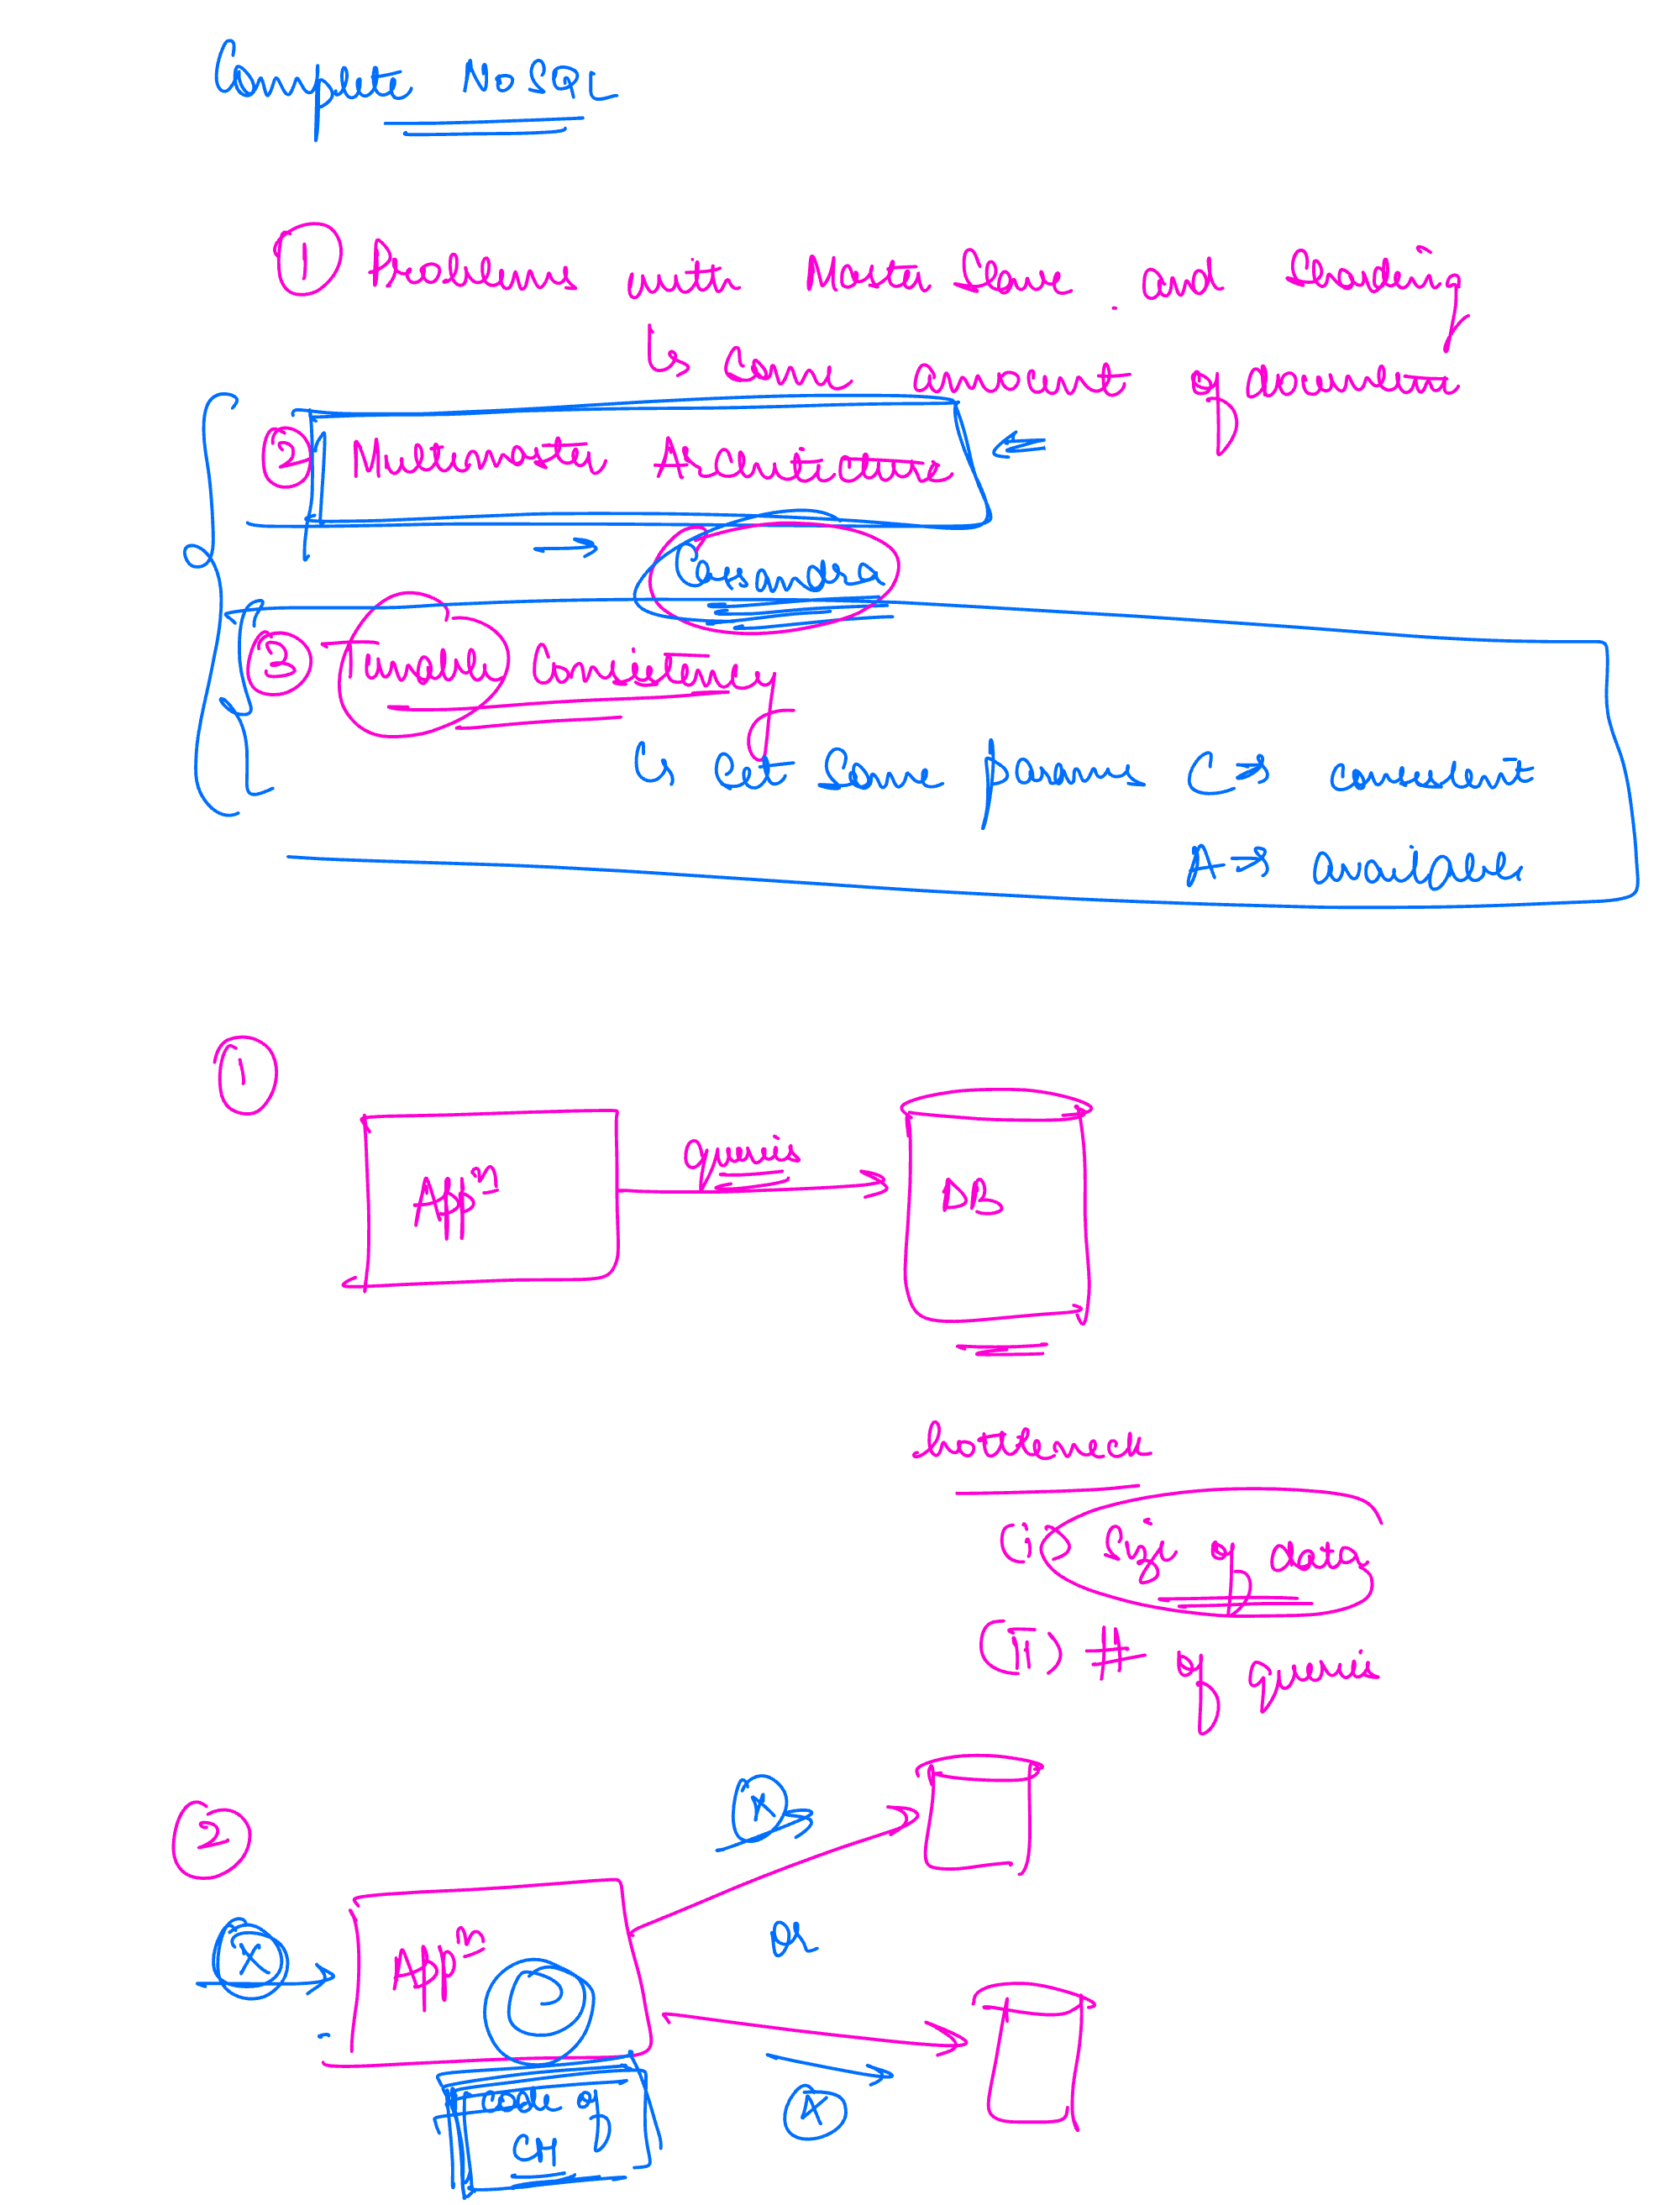 Complete NoSQL
① Problems with Master Slave and Sharding
↳ Some amount of downtime
② Multimaster Architecture
→ Cassandra
③ Tunable Consistency
↳ set some params C → consistent
A → available
①
Appⁿ
queries
DB
bottleneck
(i) Size of data
(ii) # of queries
②
X
Appⁿ
C
or
code of
CH